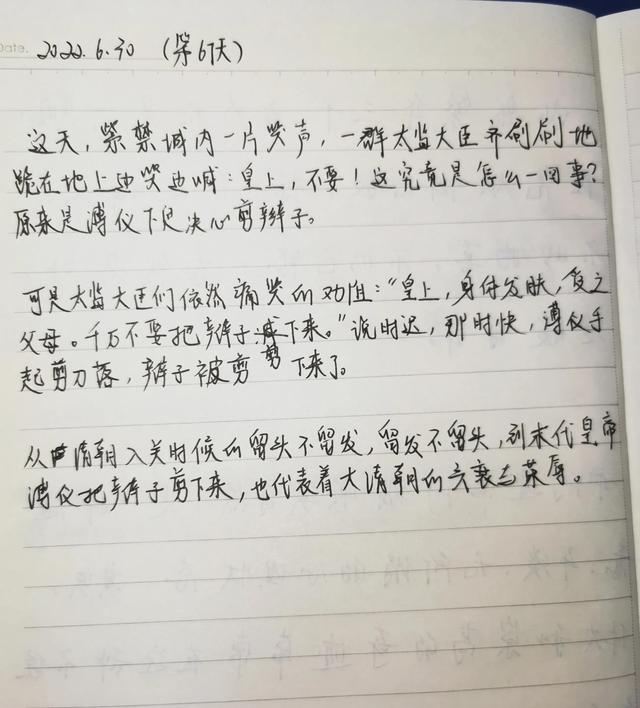 Date. 2022.6.30 (第67天)
这天,紫禁城内一片哭声,一群太监大臣齐刷刷地
跪在地上边哭边喊:皇上,不要!这究竟是怎么一回事?
原来是溥仪下足决心剪辫子。
可是太监大臣们依然痛哭的劝阻:“皇上,身体发肤,受之
父母。千万不要把辫子剪下来。”说时迟,那时快,溥仪手
起剪刀落,辫子被剪下来了。
从清朝入关时候的留头不留发,留发不留头,到末代皇帝
溥仪把辫子剪下来,也代表着大清朝的兴衰与荣辱。